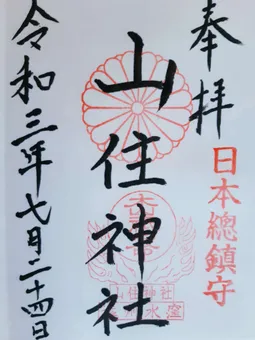 奉拝
日本總鎮守
山住神社
山住神社
水窪
令和三年七月二十四日